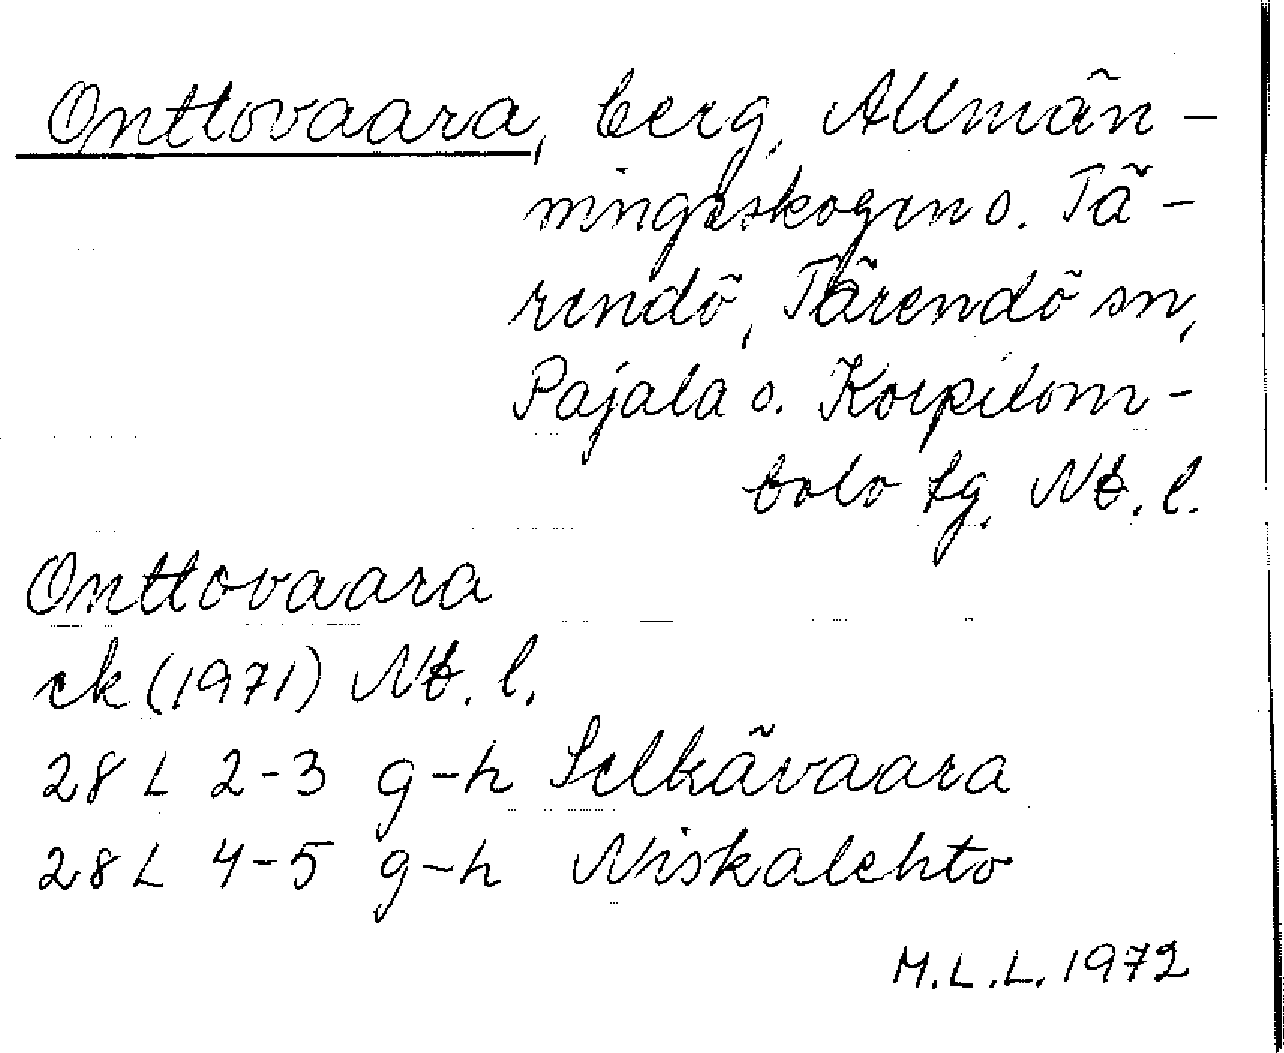 Onttovaara, berg, Allmän-
ningsskogen o. Tä-
rendö, Tärendö sn,
Pajala o. Korpilom-
bolo tg, Nb. l.
Onttovaara
ek (1971) Nb. l.
28 L 2-3 g-h Selkävaara
28 L 4-5 g-h Niskalehto
M.L.L. 1972